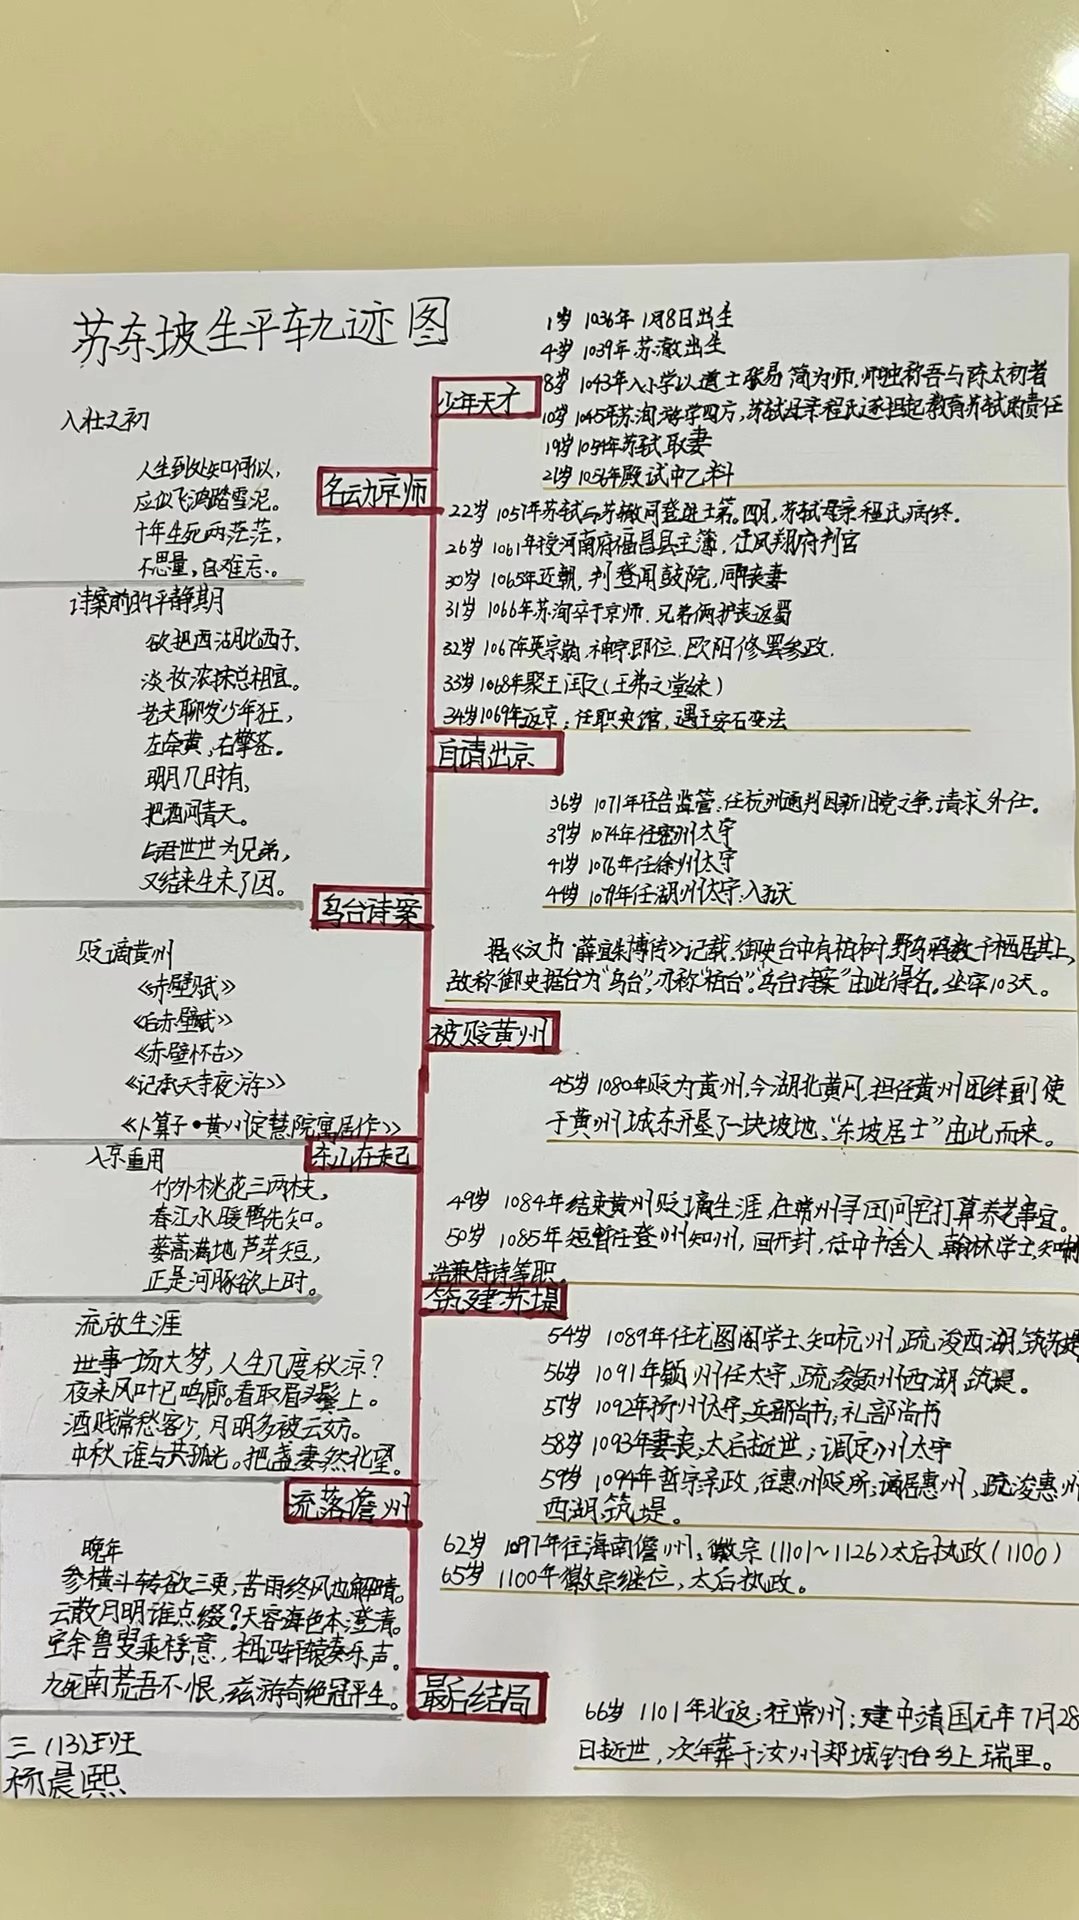 苏东坡生平轨迹图
少年天才
1岁 1036年 1月8日出生
4岁 1039年 苏澈出生
8岁 1043年入小学以道士张易简为师,师独称吾与陈太初者
10岁 1045年苏洵游学四方,苏轼母亲程氏逐担起教育苏轼的责任
19岁 1054年苏轼取妻
21岁 1056年殿试中乙科
名动京师
22岁 1057年苏轼与苏辙同登进士第。四月,苏轼母亲程氏病终.
26岁 1061年授河南府福昌县主薄,任凤翔府判官
30岁 1065年还朝,判登闻鼓院,同年丧妻
31岁 1066年苏洵卒于京师.兄弟俩护丧返蜀
32岁 1067年英宗崩.神宗即位.欧阳修罢参政.
33岁 1068年聚王闰之(王弗之堂妹)
34岁 1069年返京;任职史馆,遇王安石变法
自请出京
36岁 1071年任告监管;任杭州通判因新旧党之争,请求外任。
39岁 1074年任密州太守
41岁 1076年任徐州太守
44岁 1079年任湖州太守;入狱
乌台诗案
据《汉书·薛宣朱博传》记载,御史台中有柏树,野乌鸦数千栖居其上,
故称御史据台为“乌台”,亦称“柏台”。“乌台诗案”由此得名。坐牢103天。
被贬黄州
45岁 1080年贬为黄州,今湖北黄冈,担任黄州团练副使
于黄州城东开垦了一块坡地,“东坡居士”由此而来。
东山在起
49岁 1084年结束黄州贬谪生涯,在常州寻田问宅打算养老事宜。
50岁 1085年短暂任登州知州,回开封,任中书舍人,翰林学士,知制
诰兼侍诗等职。
筑建苏堤
54岁 1089年任龙图阁学士,知杭州,疏浚西湖,筑苏堤
56岁 1091年颍州任太守,疏浚颍州西湖,筑堤。
57岁 1092年扬州太守;兵部尚书;礼部尚书
58岁 1093年妻丧;太后逝世;调定州太守
59岁 1094年哲宗亲政,任惠州贬所;谪居惠州,疏浚惠州
西湖,筑堤。
流落儋州
62岁 1097年往海南儋州,徽宗(1101~1126)太后执政(1100)
65岁 1100年徽宗继位,太后执政。
最后结局
66岁 1101年北返;往常州;建中靖国元年7月28
日逝世,次年葬于汝州郏城钓台乡上瑞里。
入壮之初
人生到处知何似,
应似飞鸿踏雪泥。
十年生死两茫茫,
不思量,自难忘。
诗案前的平静期
欲把西湖比西子,
淡妆浓抹总相宜。
老夫聊发少年狂,
左牵黄,右擎苍。
明月几时有,
把酒问青天。
与君世世为兄弟,
又结来生未了因。
贬谪黄州
《赤壁赋》
《后赤壁赋》
《赤壁怀古》
《记承天寺夜游》
《卜算子•黄州定慧院寓居作》
入京重用
竹外桃花三两枝,
春江水暖鸭先知。
蒌蒿满地芦芽短,
正是河豚欲上时。
流放生涯
世事一场大梦,人生几度秋凉?
夜来风叶已鸣廊。看取眉头鬓上。
酒贱常愁客少,月明多被云妨。
中秋谁与共孤光。把盏妻然北望。
晚年
参横斗转欲三更,苦雨终风也解晴。
云散月明谁点缀?天容海色本澄清。
空余鲁叟乘桴意,粗识轩辕奏乐声。
九死南荒吾不恨,兹游奇绝冠平生。
三(13)班
杨晨熙